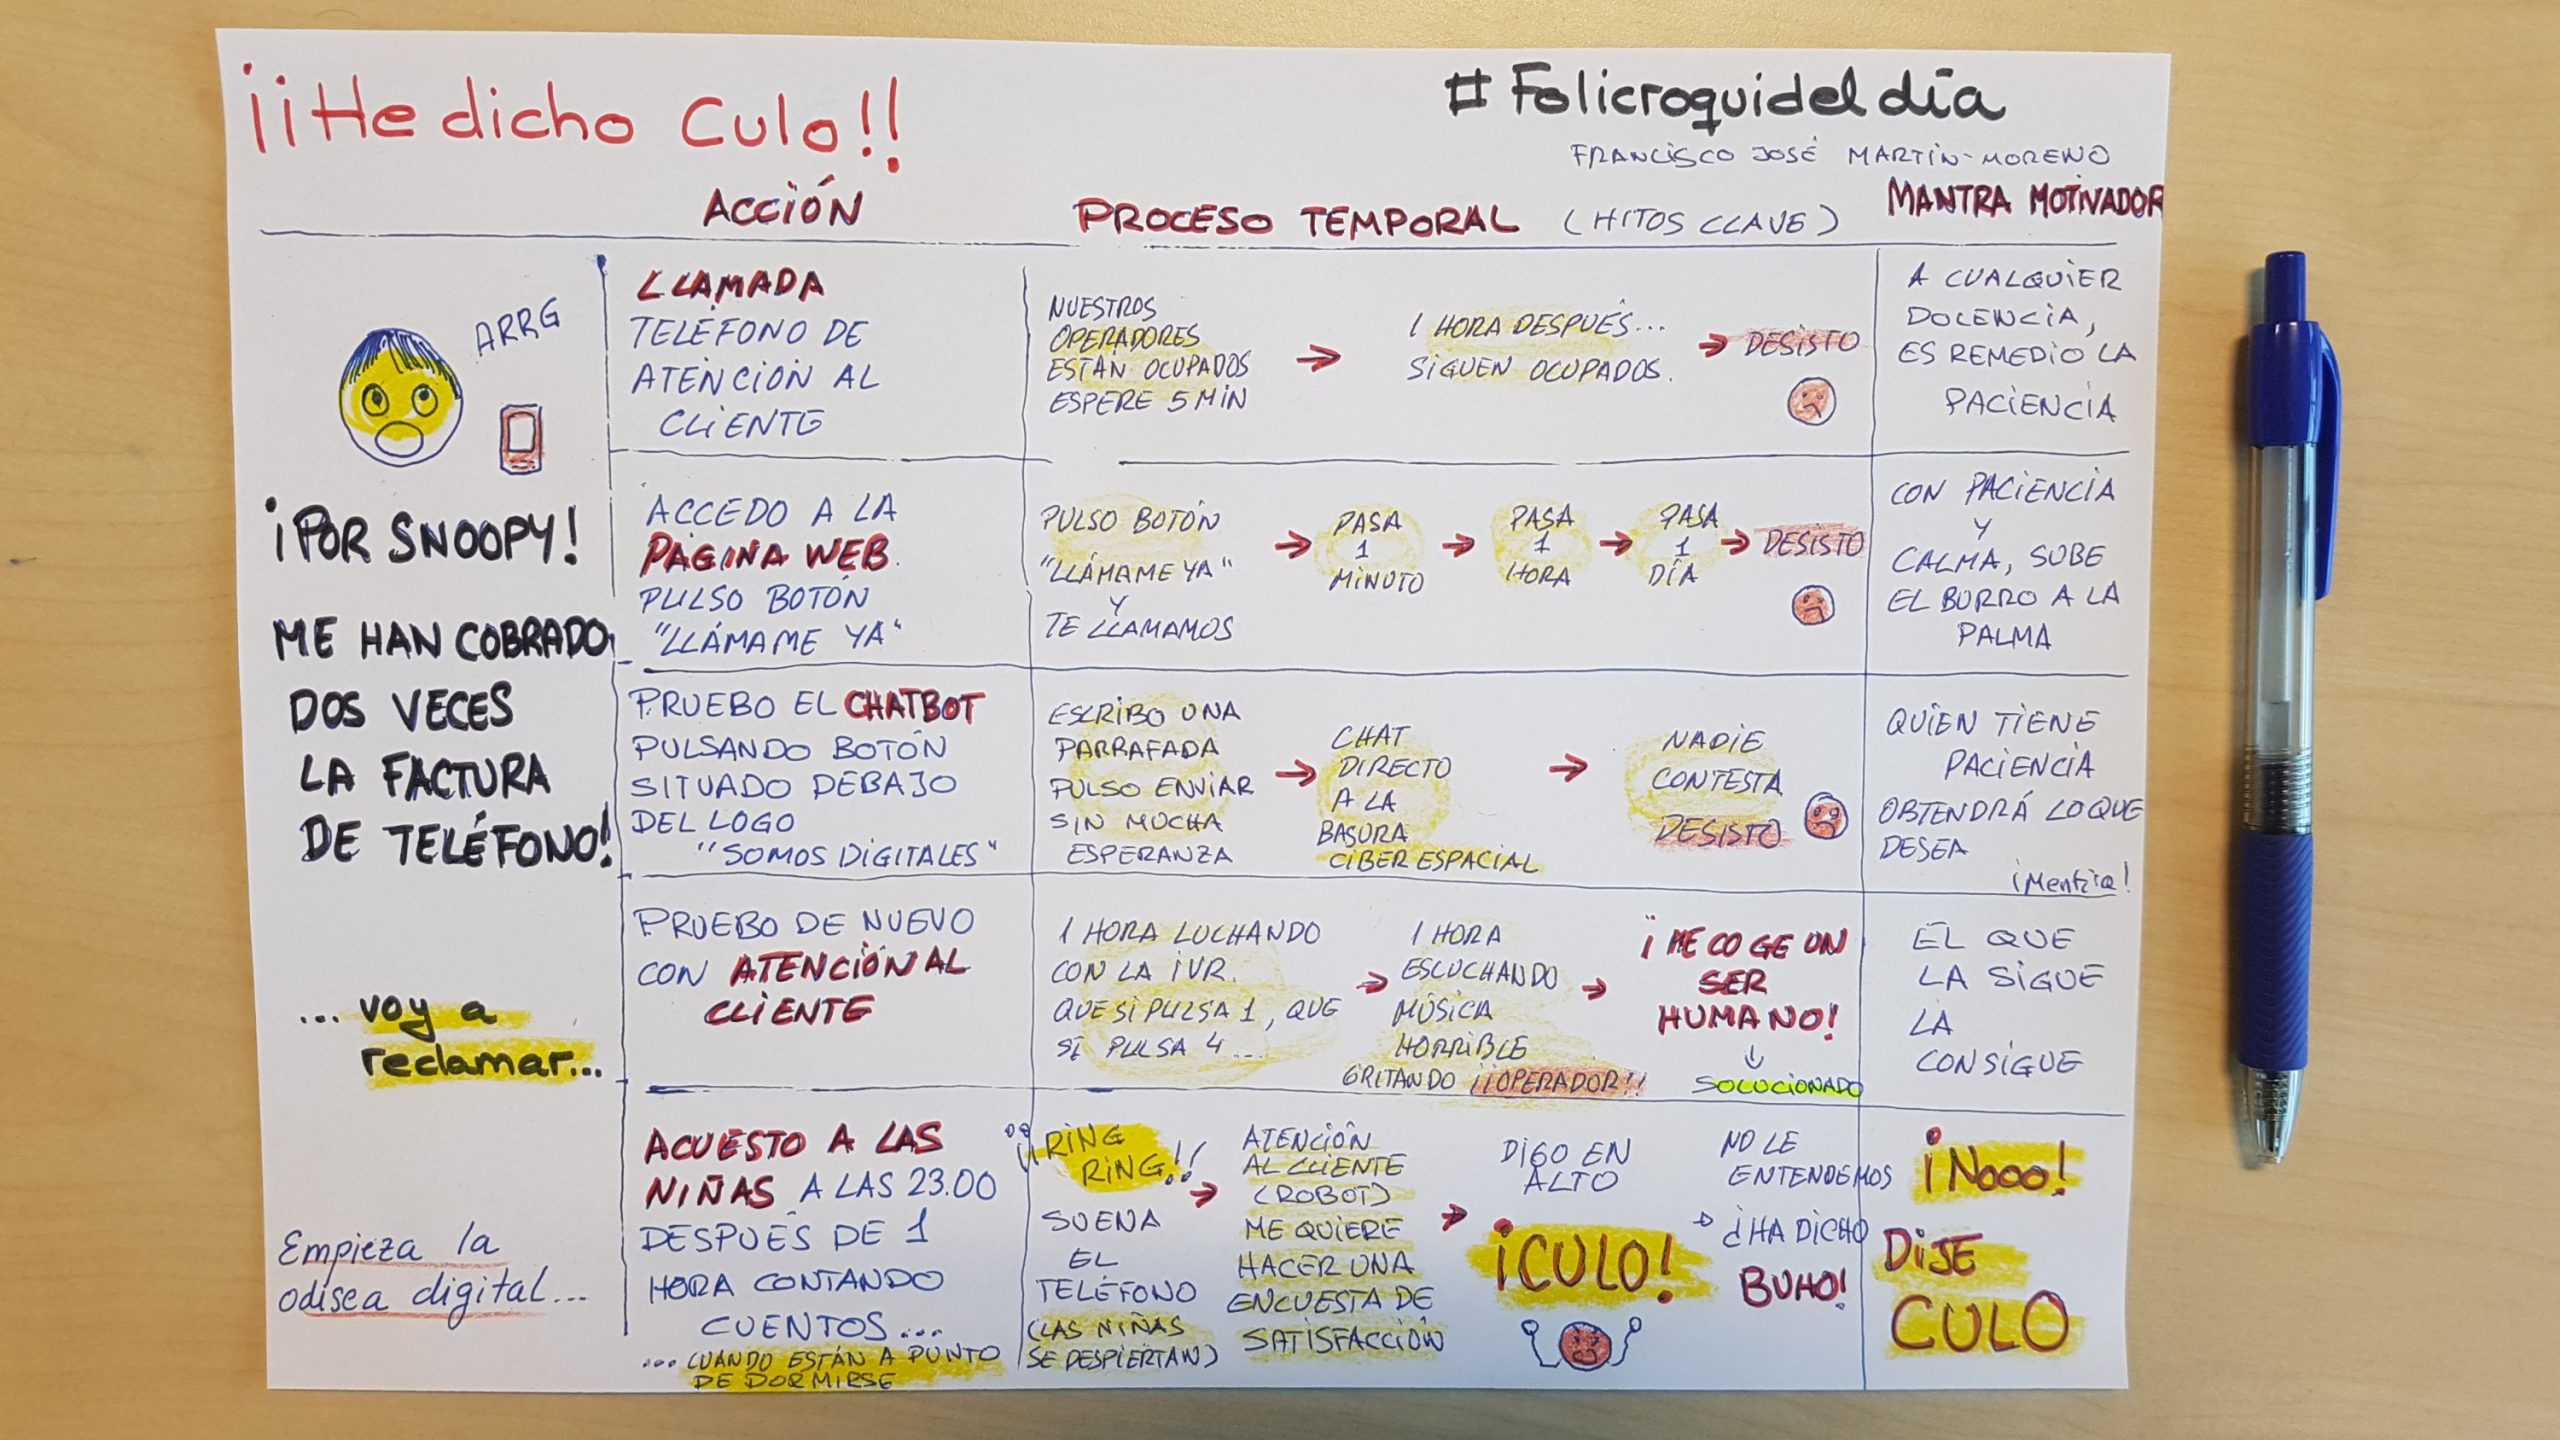 ¡¡He dicho Culo!!
#Folicroquideldía
FRANCISCO JOSÉ MARTÍN-MORENO
ACCIÓN
PROCESO TEMPORAL (HITOS CLAVE)
MANTRA MOTIVADOR
ARRG
¡POR SNOOPY!
ME HAN COBRADO
DOS VECES
LA FACTURA
DE TELÉFONO!
... voy a
reclamar...
Empieza la
odisea digital...
LLAMADA
TELÉFONO DE
ATENCIÓN AL
CLIENTE
NUESTROS
OPERADORES
ESTÁN OCUPADOS
ESPERE 5 MIN
→
1 HORA DESPUÉS...
SIGUEN OCUPADOS.
→ DESISTO
A CUALQUIER
DOLENCIA,
ES REMEDIO LA
PACIENCIA
ACCEDO A LA
PÁGINA WEB.
PULSO BOTÓN
"LLÁMAME YA"
PULSO BOTÓN
"LLÁMAME YA"
Y
TE LLAMAMOS
→
PASA
1
MINUTO
→
PASA
1
HORA
→
PASA
1
DÍA
→ DESISTO
CON PACIENCIA
Y
CALMA, SUBE
EL BURRO A LA
PALMA
PRUEBO EL CHATBOT
PULSANDO BOTÓN
SITUADO DEBAJO
DEL LOGO
"SOMOS DIGITALES"
ESCRIBO UNA
PARRAFADA
PULSO ENVIAR
SIN MUCHA
ESPERANZA
→
CHAT
DIRECTO
A LA
BASURA
CIBERESPACIAL
→
NADIE
CONTESTA
DESISTO
QUIEN TIENE
PACIENCIA
OBTENDRÁ LO QUE
DESEA
¡Mentira!
PRUEBO DE NUEVO
CON ATENCIÓN AL
CLIENTE
1 HORA LUCHANDO
CON LA IVR.
QUE SI PULSA 1, QUE
SI PULSA 4...
→
1 HORA
ESCUCHANDO
MÚSICA
HORRIBLE
GRITANDO ¡¡OPERADOR!!
→
¡ME COGE UN
SER
HUMANO!
↓
SOLUCIONADO
EL QUE
LA SIGUE
LA
CONSIGUE
ACUESTO A LAS
NIÑAS A LAS 23.00
DESPUÉS DE 1
HORA CONTANDO
CUENTOS...
... CUANDO ESTÁN A PUNTO
DE DORMIRSE
¡¡RING
RING!!
SUENA
EL
TELÉFONO
(LAS NIÑAS
SE DESPIERTAN)
→
ATENCIÓN
AL CLIENTE
(ROBOT)
ME QUIERE
HACER UNA
ENCUESTA DE
SATISFACCIÓN
→
DIGO EN
ALTO
¡CULO!
NO LE
ENTENDEMOS
→ ¿HA DICHO
BUHO!
¡Nooo!
DIJE
CULO